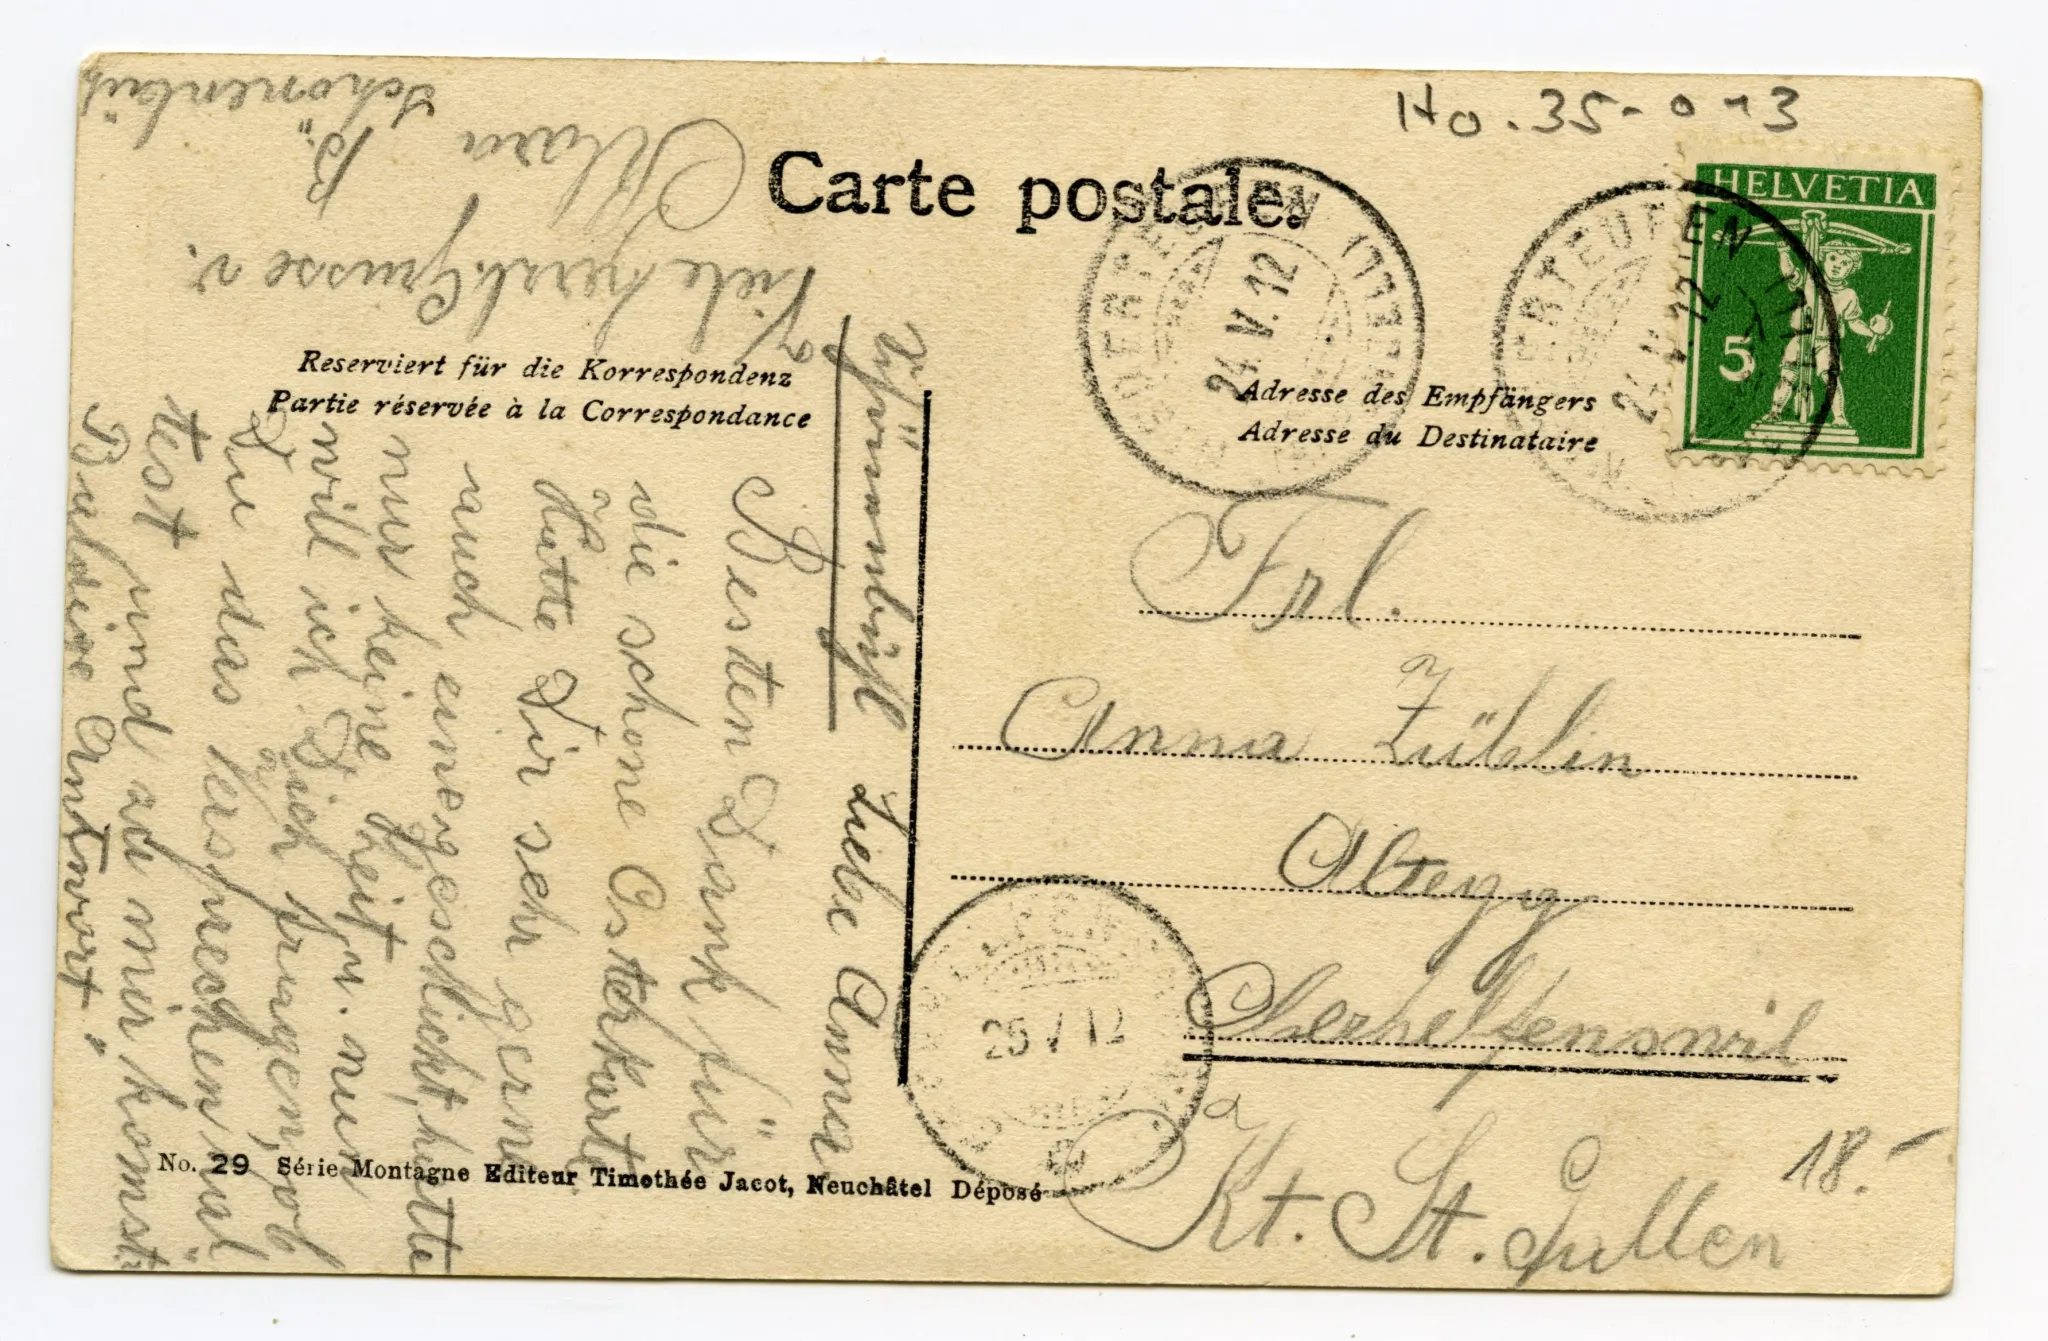 Ho. 35-013
Carte postale.
HELVETIA
5
NIEDERTEUFEN
24.V.12
NIEDERTEUFEN
24.V.12
Reserviert für die Korrespondenz
Partie réservée à la Correspondance
Adresse des Empfängers
Adresse du Destinataire
Frl.
Anna Züblin
Altegg
Oberhelfenswil
Kt. St. Gallen
18.-
25 V 12
Liebe Anna
Besten Dank für
die schöne Osterkarte
Hätte Dir sehr gerne
auch eine geschickt, hatte
nur keine Zeit u. nun
will ich Dich fragen, ob
Du das Versprechen häl
test und zu mir komst.
Baldige Antwort.
Viele herzl. Grüsse v.
Klara
B.
Schönenbüh
No. 29 Série Montagne Editeur Timothée Jacot, Neuchâtel Déposé